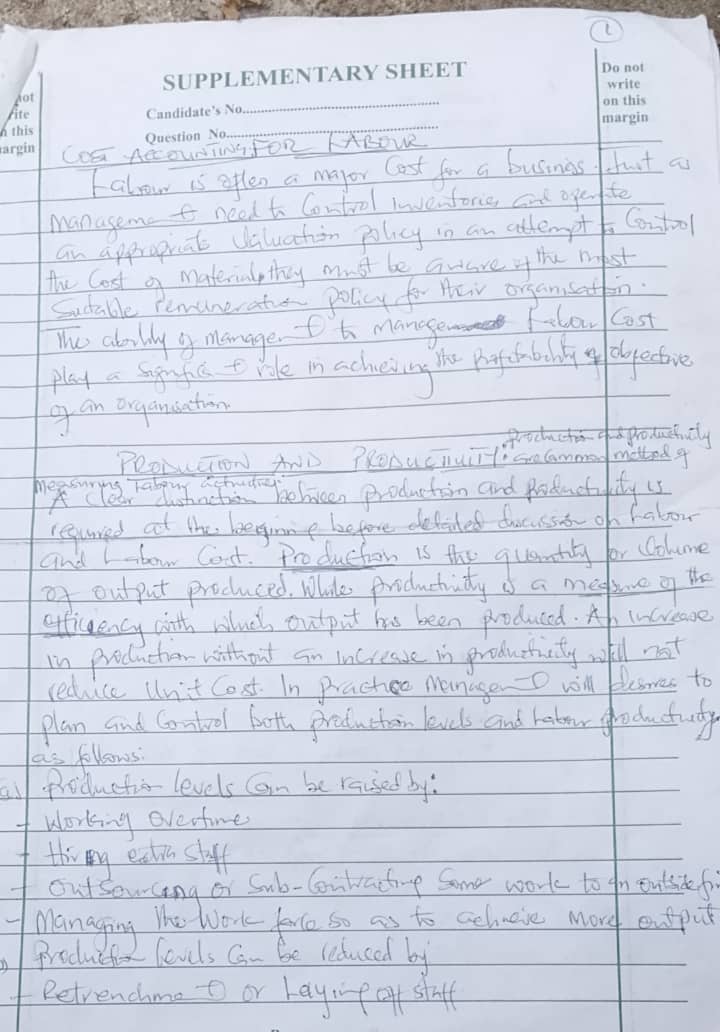 1
SUPPLEMENTARY SHEET
Candidate's No.
Question No.
Do not
write
on this
margin
not
rite
n this
argin
COST ACCOUNTING FOR LABOUR
Labour is often a major Cost for a business. Just as
management need to Control inventories and operate
an appropriate Valuation policy in an attempt to Control
the Cost of Materials, they must be aware of the most
Suitable remuneration policy for their organisation.
The ability of management to manage Labour Cost
play a significant role in achieving the profitability objective
of an organisation.
production and productivity
PRODUCTION AND PRODUCTIVITY: are Common method of
Measuring Labour Activities
A clear distinction between production and productivity is
required at the beginning before detailed discussion on Labour
and Labour Cost. Production is the quantity or Volume
of output produced. While productivity is a measure of the
efficiency with which output has been produced. An increase
in production without an increase in productivity will not
reduce Unit Cost. In practice management will desires to
plan and Control both production levels and Labour productivity
as follows:
a) Production levels Can be raised by:
- Working Overtime
- Hiring extra staff
- Outsourcing or Sub-Contracting Some work to an outside
- Managing the Work force so as to acheive More output
Production levels Can be reduced by
- Retrenchment or Laying off staff